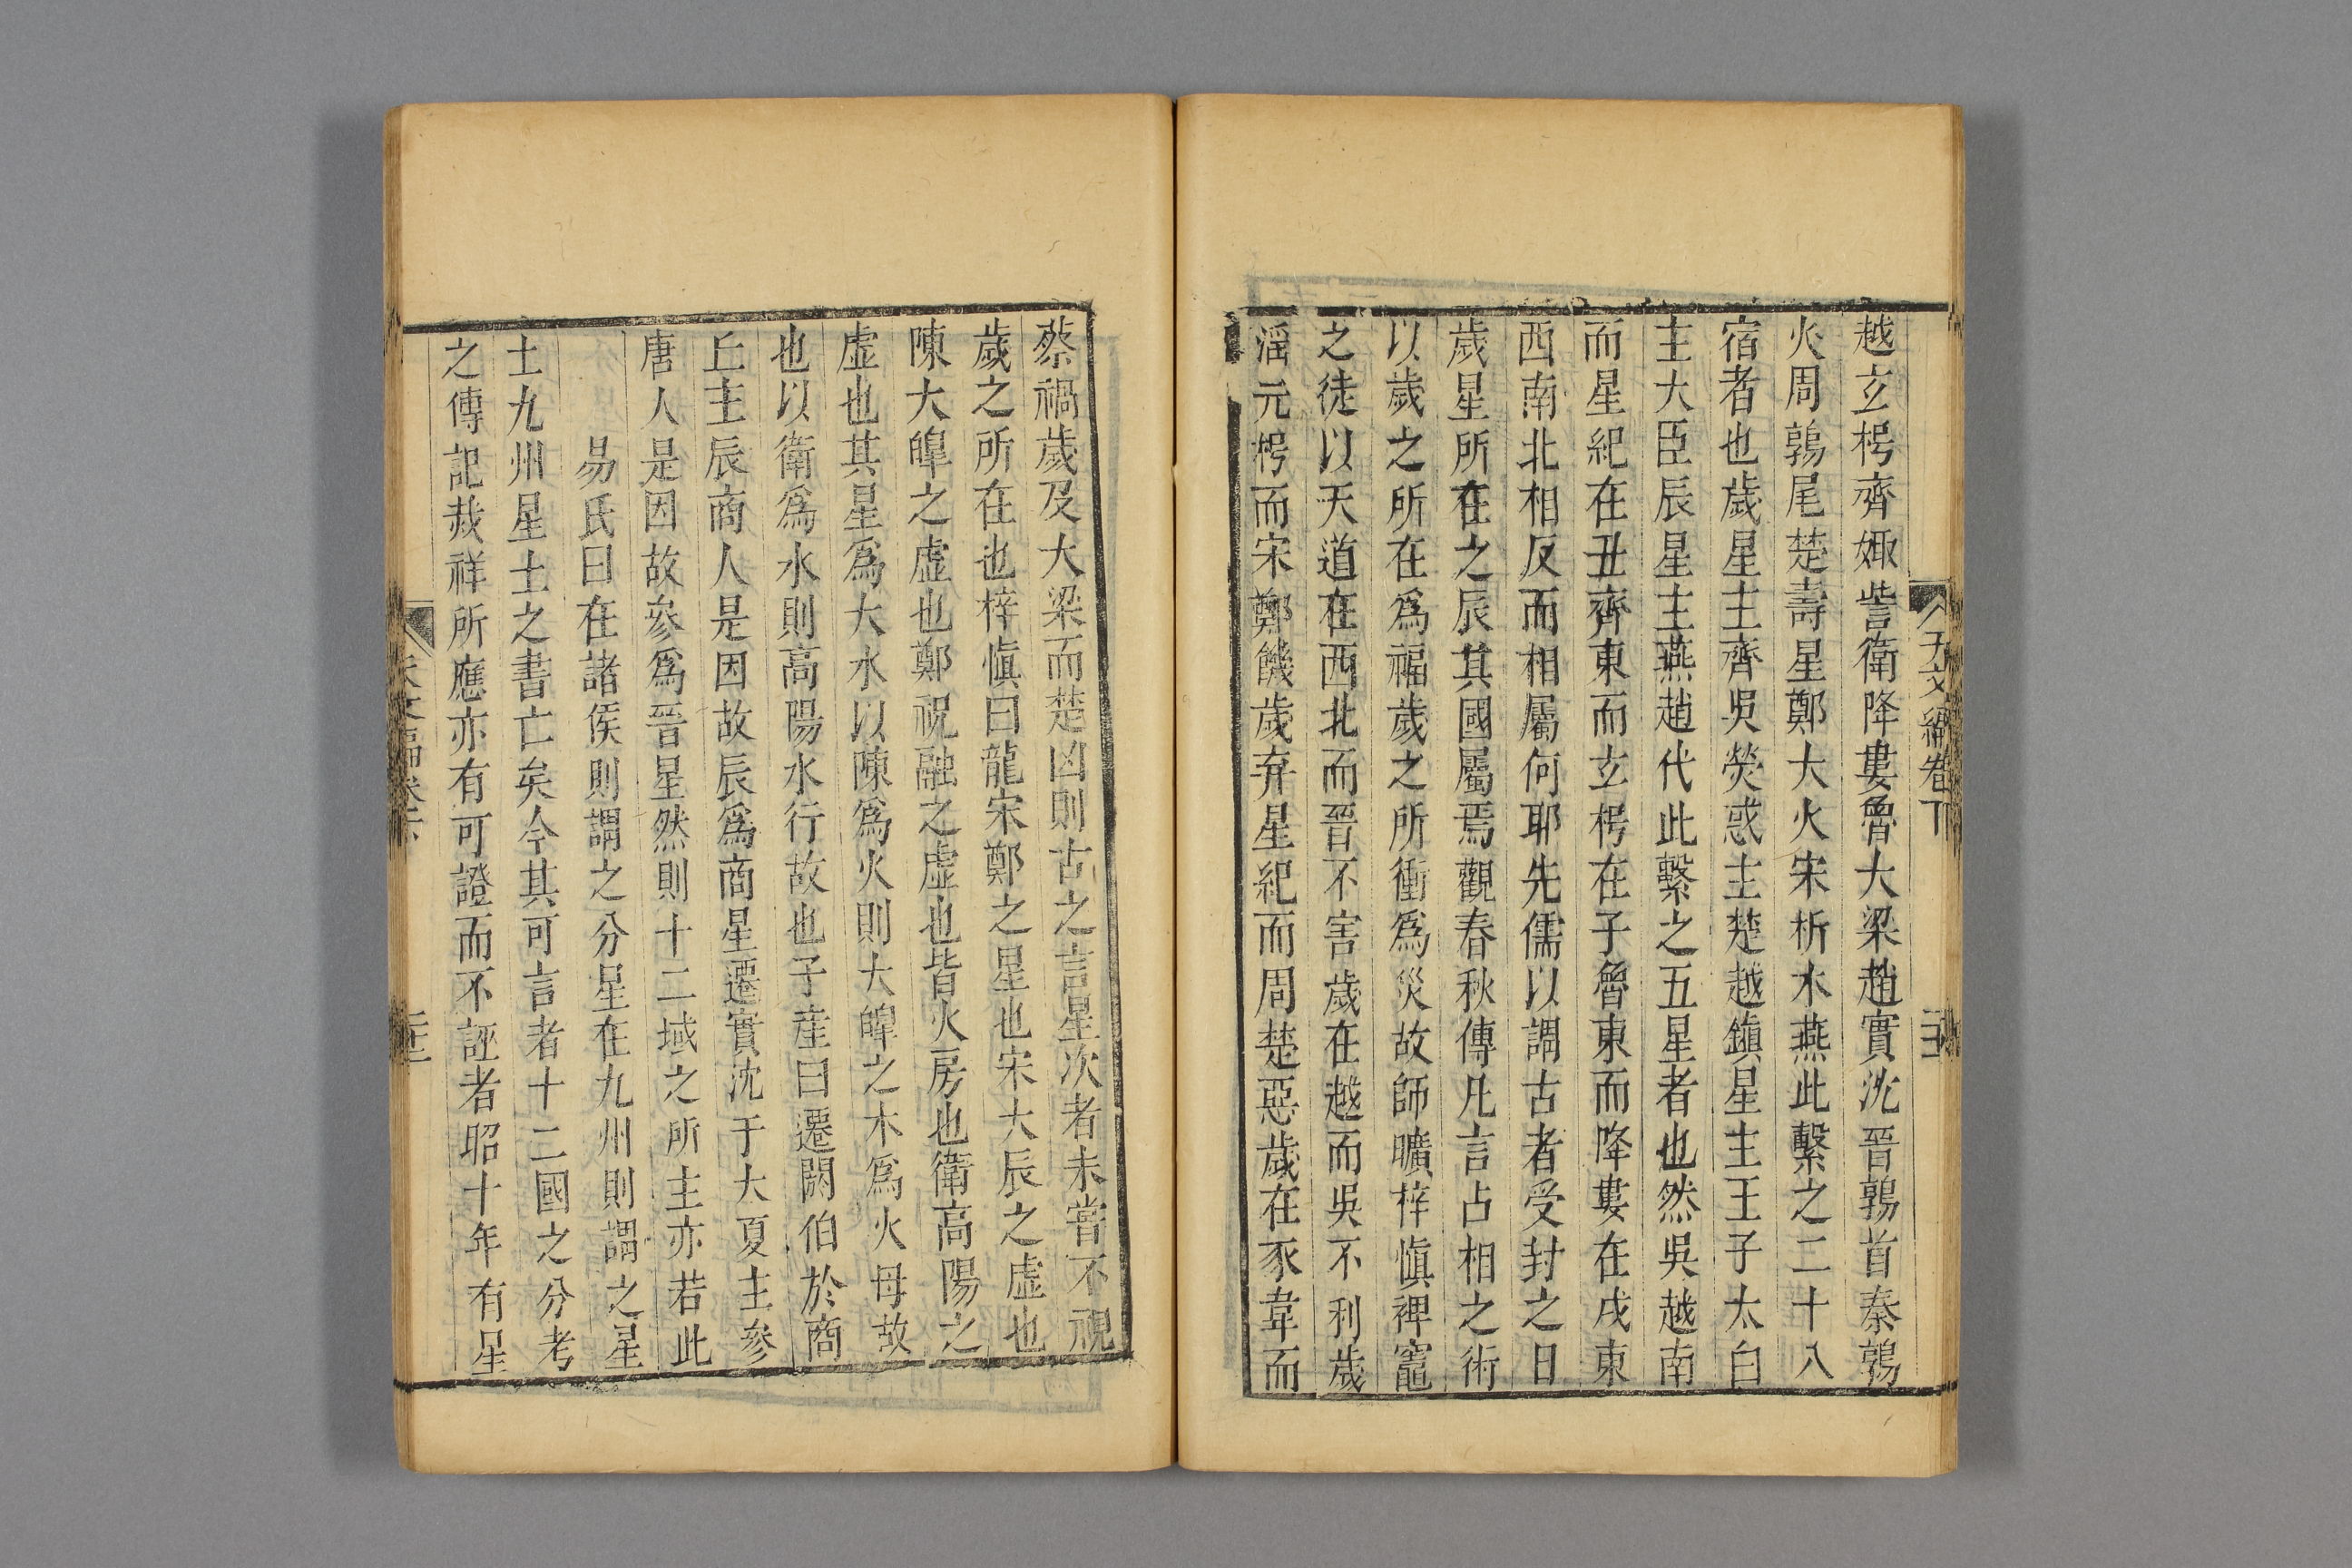 越玄枵齊娵訾衛降婁魯大梁趙實沈晉鶉首秦鶉
火周鶉尾楚壽星鄭大火宋析木燕此繫之二十八
宿者也歲星主齊吳熒惑主楚越鎮星主王子太白
主大臣辰星主燕趙代此繫之五星者也然吳越南
而星紀在丑齊東而玄枵在子魯東而降婁在戌東
西南北相反而相屬何耶先儒以謂古者受封之日
歲星所在之辰其國屬焉觀春秋傳凡言占相之術
以歲之所在爲福歲之所衝爲災故師曠梓愼裨竈
之徒以天道在西北而晉不害歲在越而吳不利歲
淫元枵而宋鄭饑歲弃星紀而周楚惡歲在豕韋而
蔡禍歲及大梁而楚凶則古之言星次者未嘗不視
歲之所在也梓愼曰龍宋鄭之星也宋大辰之虛也
陳大皥之虛也鄭祝融之虛也皆火房也衛高陽之
虛也其星爲大水以陳爲火則大皥之木爲火母故
也以衛爲水則高陽水行故也子產曰遷閼伯於商
丘主辰商人是因故辰爲商星遷實沈于大夏主參
唐人是因故參爲晉星然則十二域之所主亦若此
易氏曰在諸侯則謂之分星在九州則謂之星
土九州星土之書亡矣今其可言者十二國之分考
之傳記烖祥所應亦有可證而不誣者昭十年有星